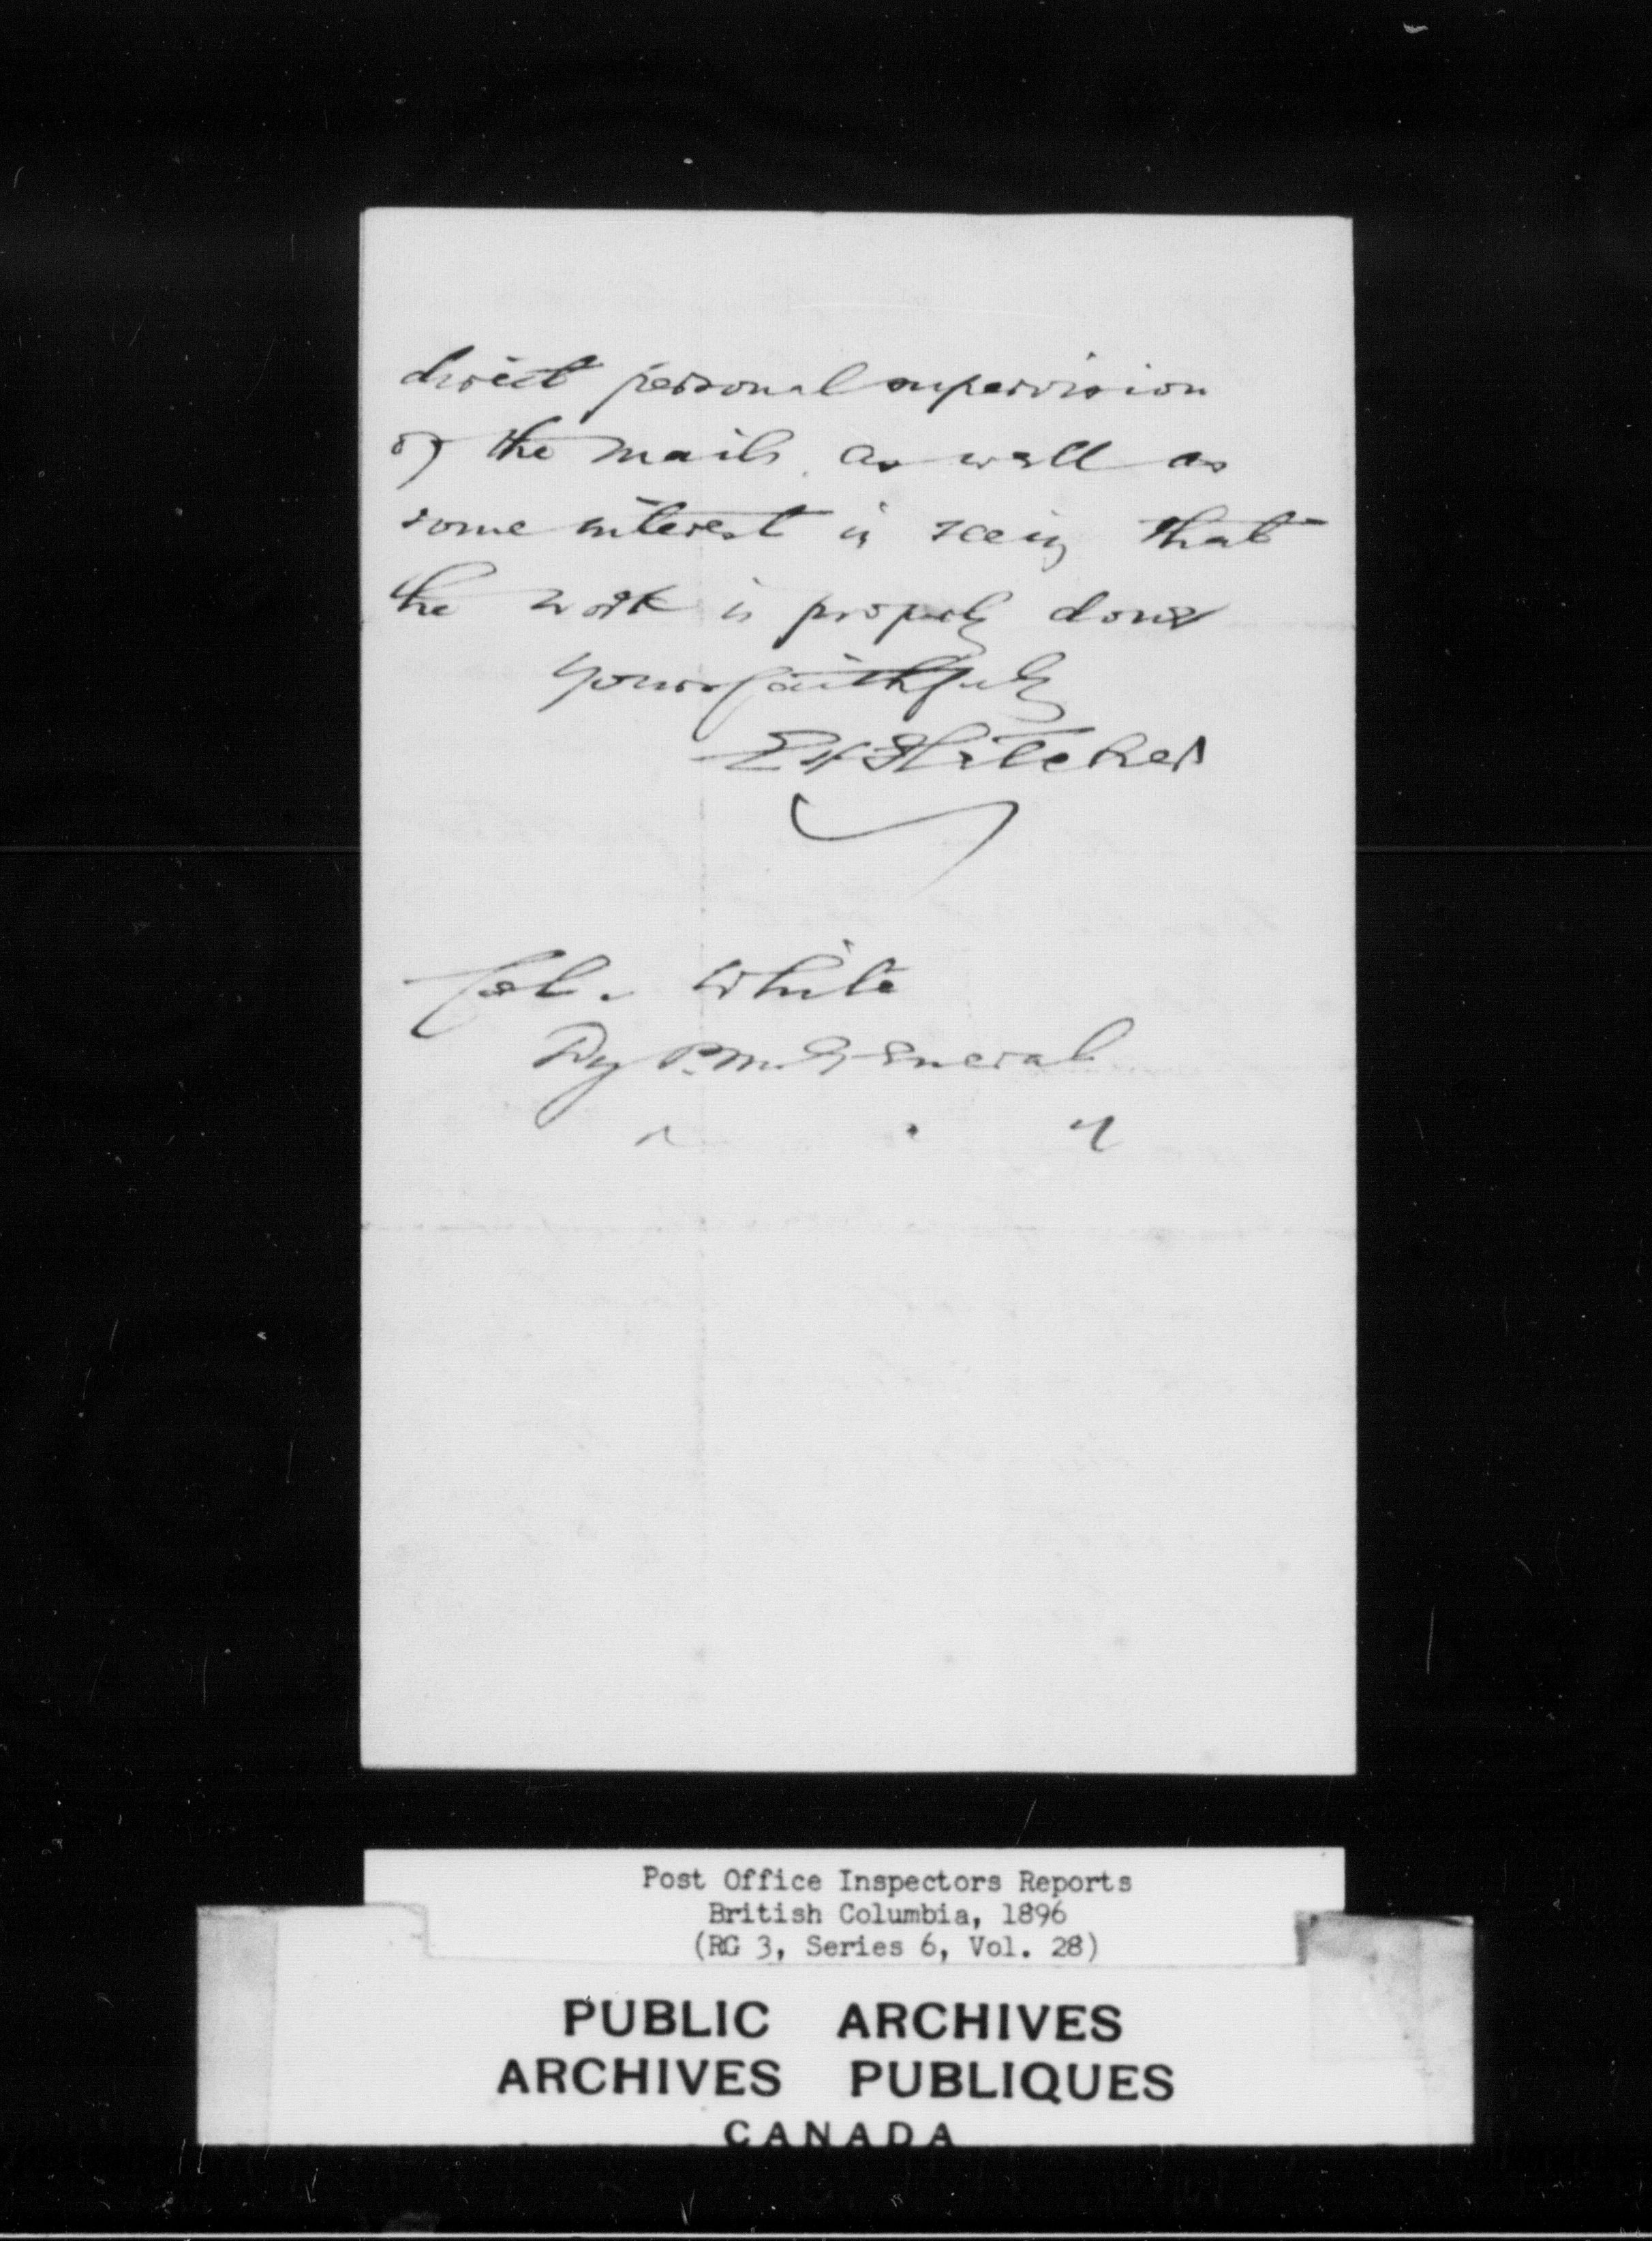 direct personal supervision
of the mails. as well as
some interest in seeing that
the work is properly done
Yours faithfully
E H Fletcher
Col. White
Dy P. M. General
Post Office Inspectors Reports
British Columbia, 1896
(RG 3, Series 6, Vol. 28)
PUBLIC ARCHIVES
ARCHIVES PUBLIQUES
CANADA